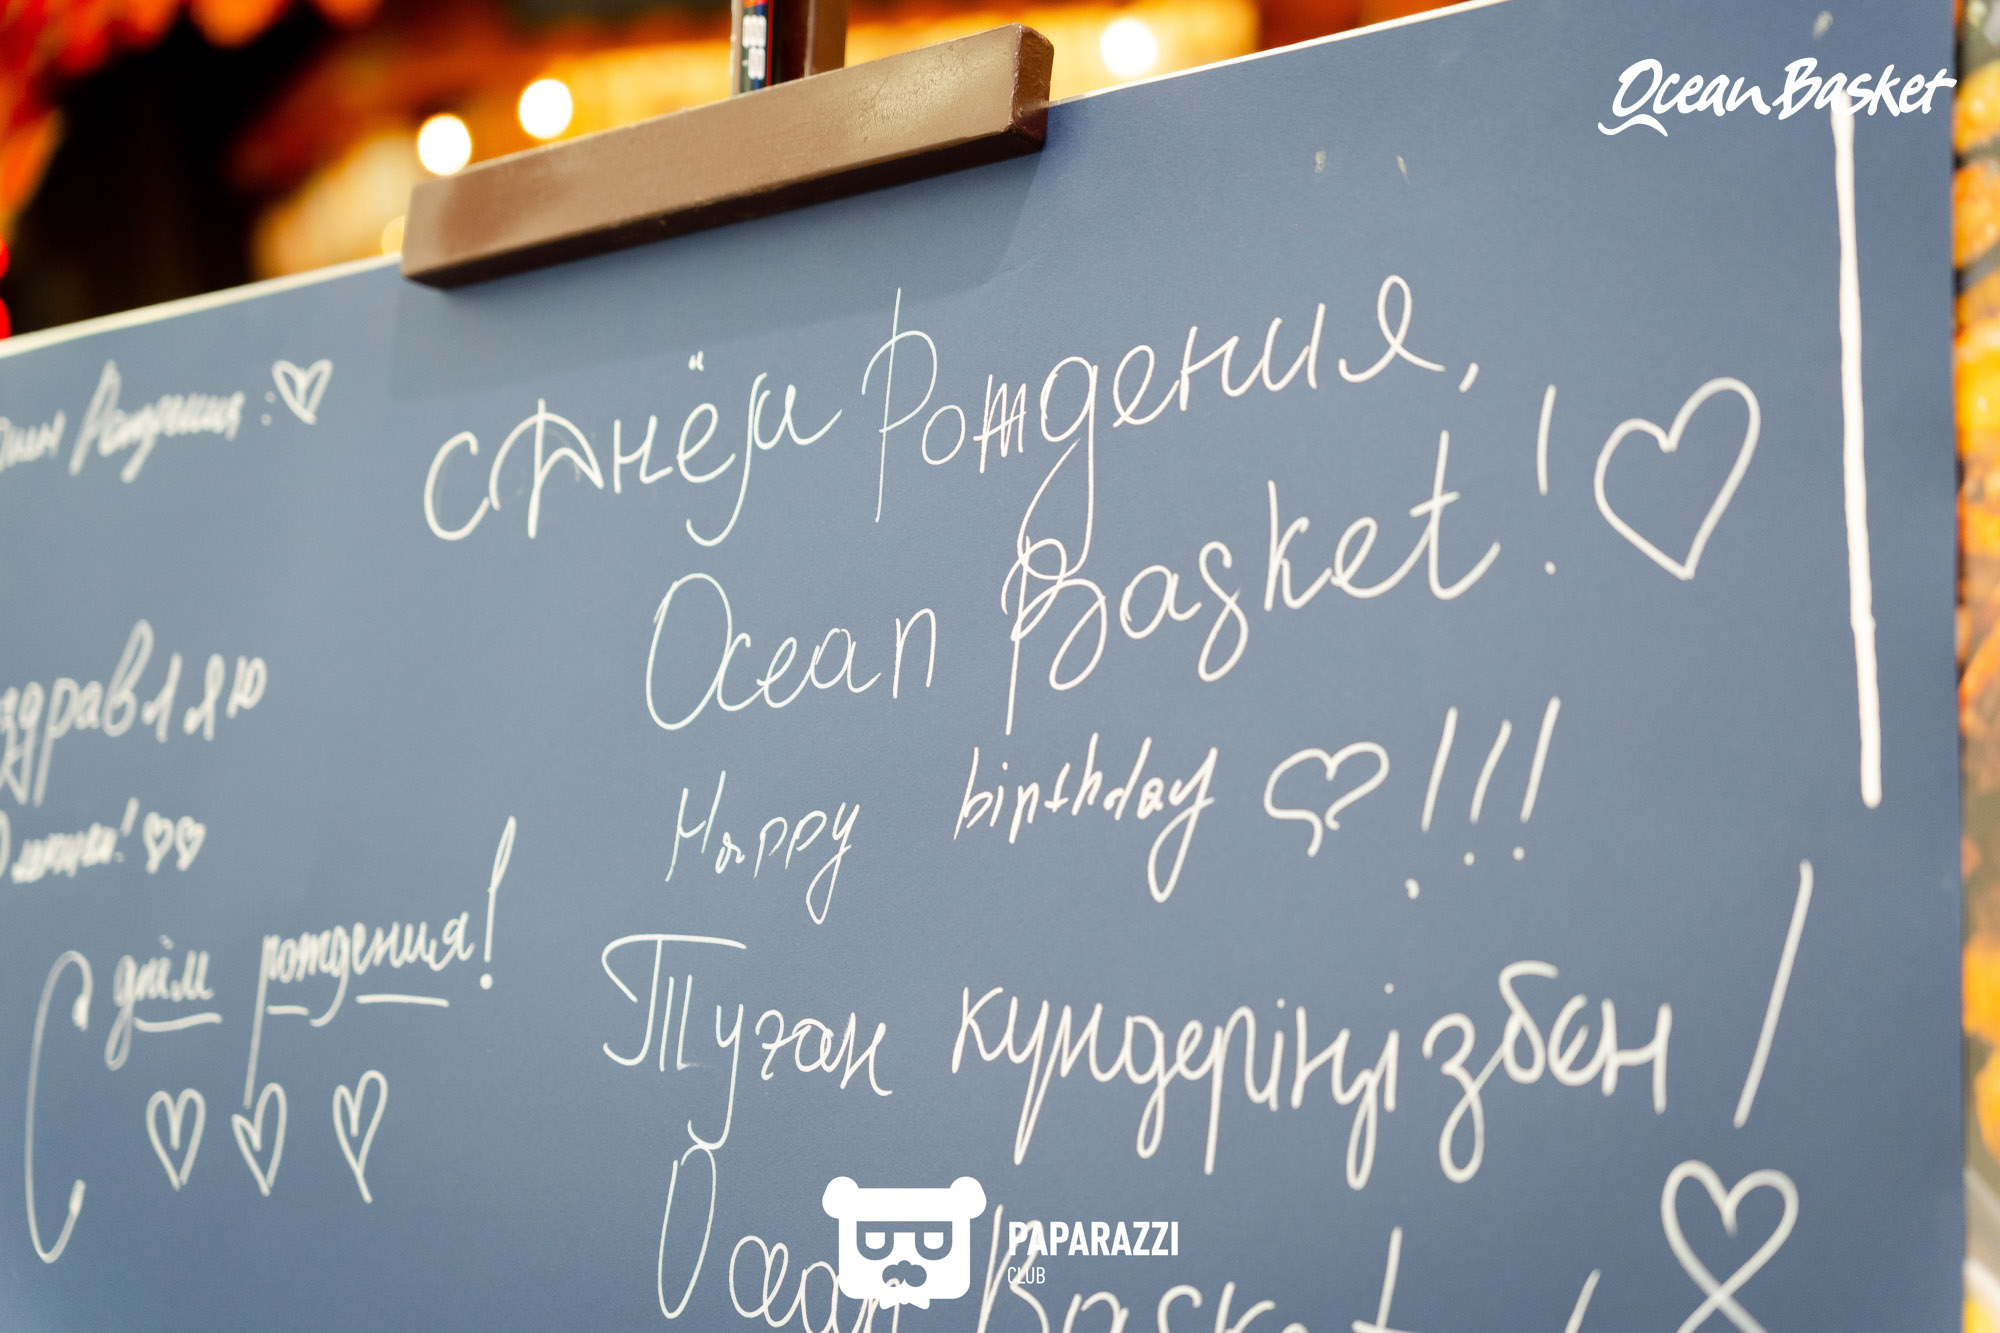 Ocean Basket
Рождения
с Днём Рождения,
Ocean Basket!
Happy birthday !!!
здравляю
С днём рождения!
Туған күндеріңізбен!
Ocean Basket
PAPARAZZI
CLUB